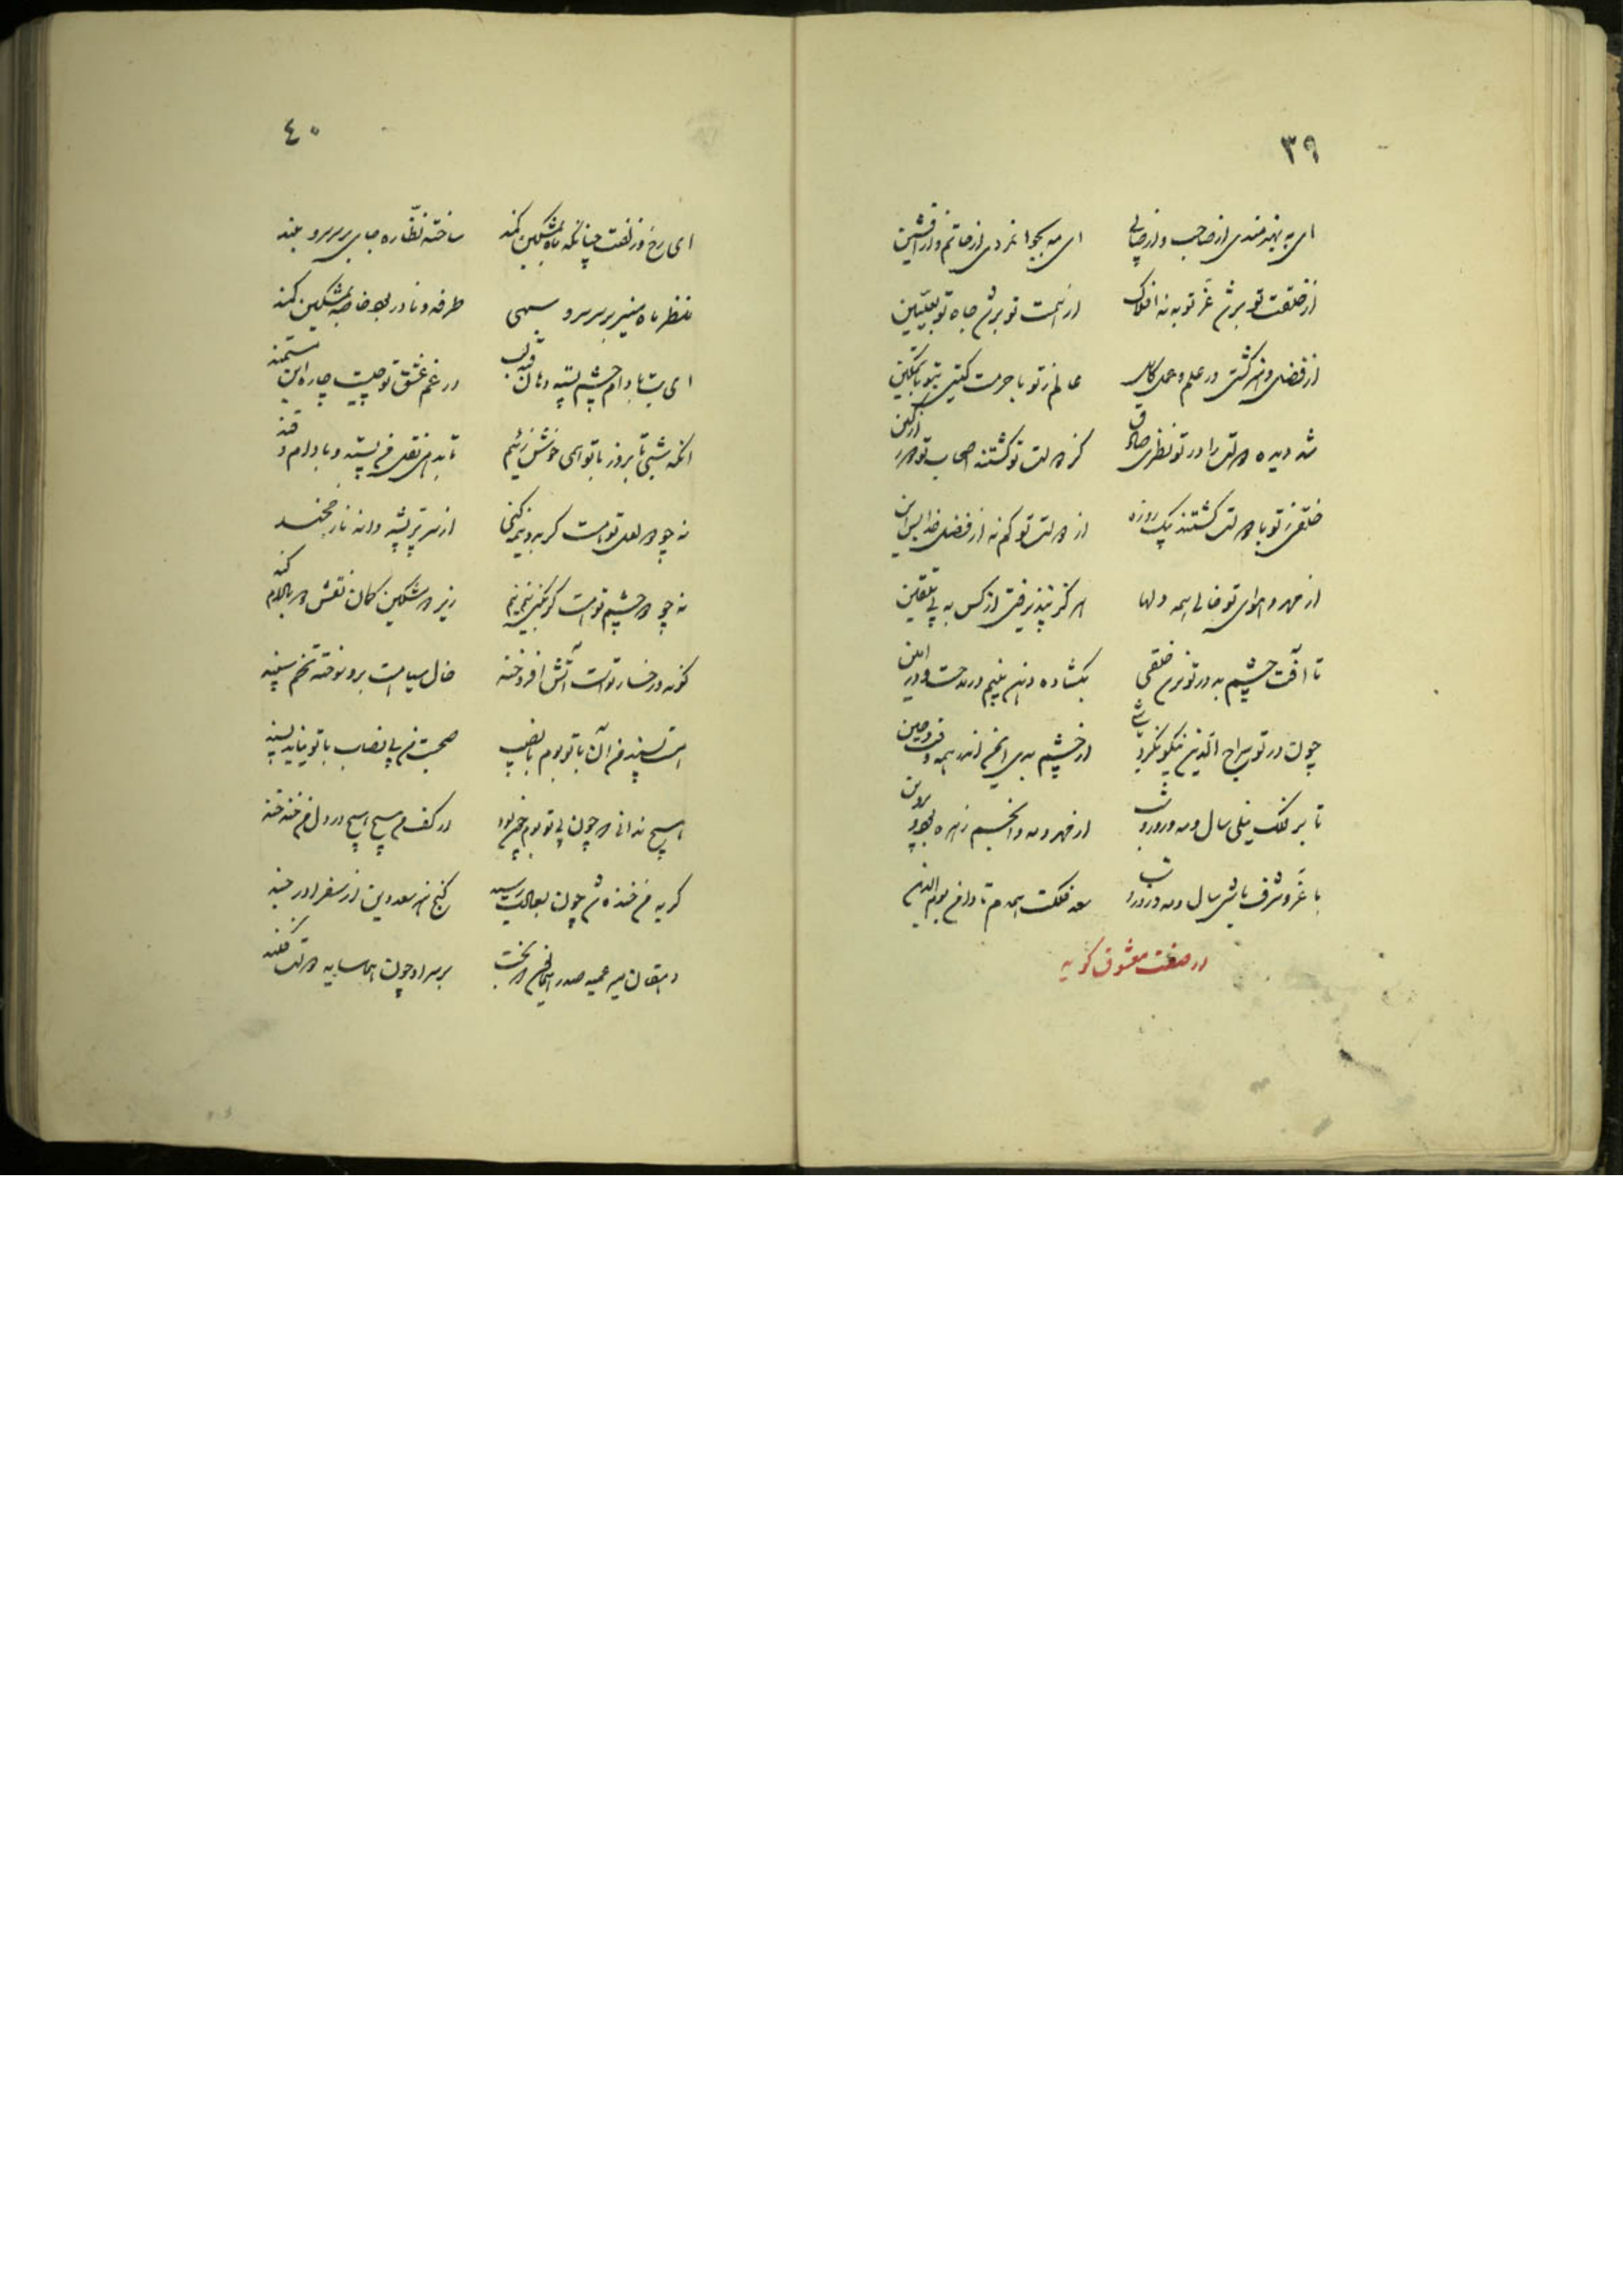 ۳۹
ای به هنرمندی از صاحب و از صابی ای مه بجوانمردی از حاتم و از افشین
از خلقت تو برشد عز تو به نه افلاک از همت تو برشد جاه تو بعلیین
از فضل و هنر گشتی در علم و عمل کامل عالم ز تو با حرمت گیتی بتو با تمکین
شد دیده دولت را در تو نظر صادق کز دولت تو گشتند اصحاب تو
خلقی ز تو با دولت گشتند یک روزه از دولت تو کم نه از فضل خدا
از مهر و هوای تو خالی همه دلها هرگز نپذیرفتی از کس به تلقین
تا آفت چشم بد در تو نرسد خلقی بگشاده دهن بینم در مدحت و در آمین
چون در تو سراج الدین نیکو نگرد از چشم بدی ایمن اندر همه وقت و حین
تا بر فلک نیلی سال و مه و روز و شب از مهر و مه و انجم زهره بود و پروین
با عز و شرف باش سال و مه و روز و شب سعد فلکت همدم تا دامن یوم الدین
در صفت معشوق گوید
۴۰
ای رخ و زلفت چنانکه ماه بمشکین کمند ساخته نظاره جای بر سر سرو بلند
منظر ماه منیر بر سر سرو سهی طرفه و نادر بود خاصه بمشکین کمند
ای بت بادام چشم پسته دهان قند لب در غم عشق تو چیست چاره این مستمند
آنکه شبی تا بروز با تو همی خوش زئیم تا بدهی نقل من پسته و بادام و قند
نه چو دو لعل تو است گر بدو نیمه کنی از سر تیشه دانه نار خجند
نه چو دو چشم تو است گر زیر دو مشکین کمان نقش دو بادام کند
گونه رخسار تو است آتش افروخته خال سیاهت برو سوخته تخم سپند
پسند من آن با تو بوم با نصیب صحبت من بی نصاب با تو نیاید پسند
هیچ ندانی که چون بی تو بوم در کف من هیچ هیچ در دل من خند خند
گریه من خنده شد چون بعمالت رسید گنج هنر سعد دین از سفر اوزجند
دهقان میر عمید صدر بر سر او چون همای سایه دولت فکند